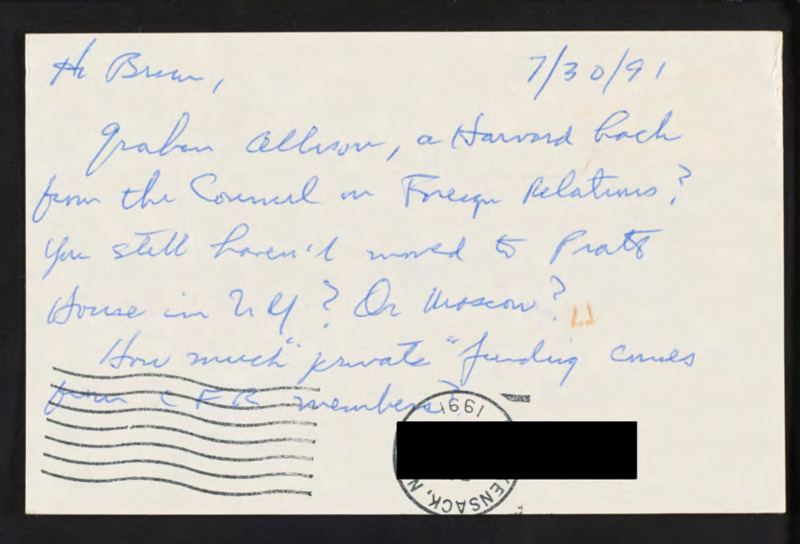 Hi Brian, 7/30/91
Graham Allison, a Harvard hack
from the Council on Foreign Relations?
You still haven't moved to Pratt
House in NY? Or Moscow?
How much "private" funding comes
from CFR members?
1991
ENSACK, N